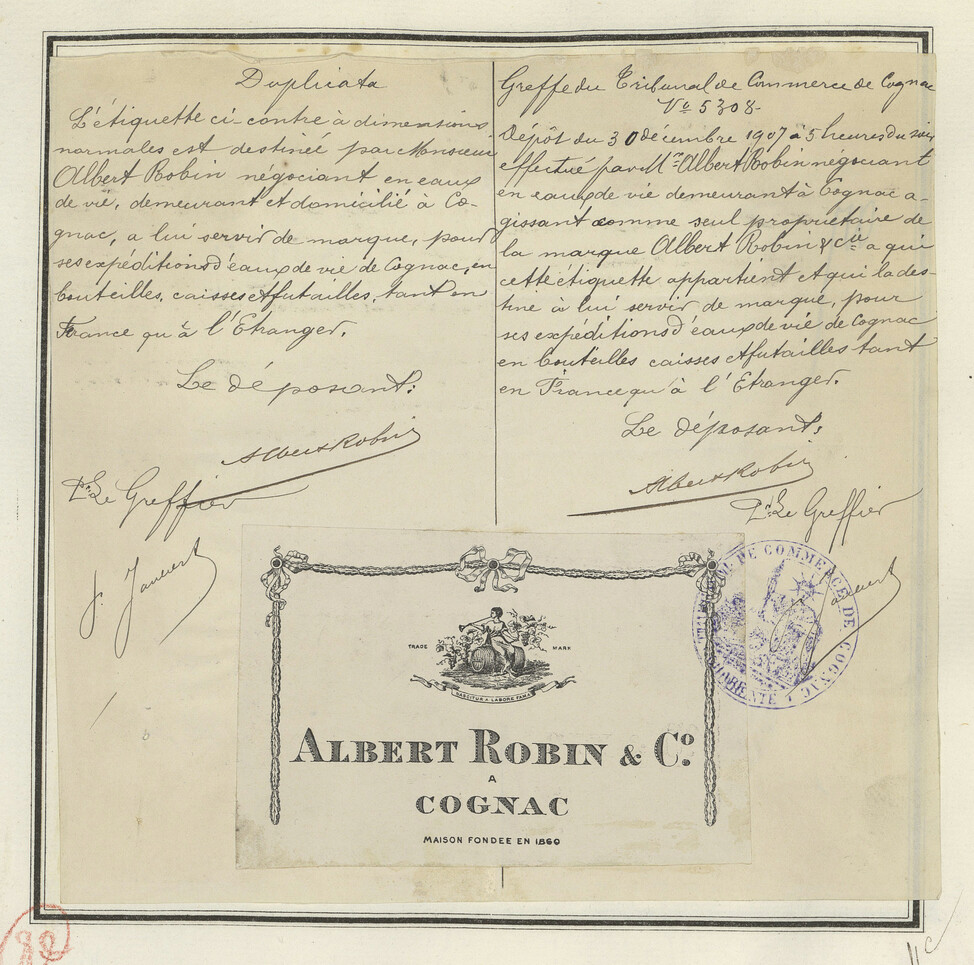 Duplicata
L'étiquette ci-contre à dimensions
normales est destinée par Monsieur
Albert Robin négociant en eaux
de vie, demeurant et domicilié à Co-
gnac, a lui servir de marque, pour
ses expéditions d'eaux de vie de Cognac, en
bouteilles, caisses et futailles, tant en
France qu'à l'Etranger.
Le déposant:
Albert Robin
Pr Le Greffier
Greffe du Tribunal de Commerce de Cognac
No 5308-
Dépôt du 30 décembre 1907 à 5 heures du soir
effectué par Mr Albert Robin négociant
en eaux de vie demeurant à Cognac a-
gissant comme seul propriétaire de
la marque Albert Robin & Cie a qui
cette étiquette appartient et qui la des-
tine à lui servir de marque, pour
ses expéditions d'eaux de vie de Cognac
en bouteilles caisses et futailles tant
en France qu'à l'Etranger.
Le déposant:
Albert Robin
Pr Le Greffier
TRIBUNAL DE COMMERCE DE COGNAC
CHARENTE
TRADE MARK
NASCITUR A LABORE FAMA
ALBERT ROBIN & Co.
A
COGNAC
MAISON FONDEE EN 1860